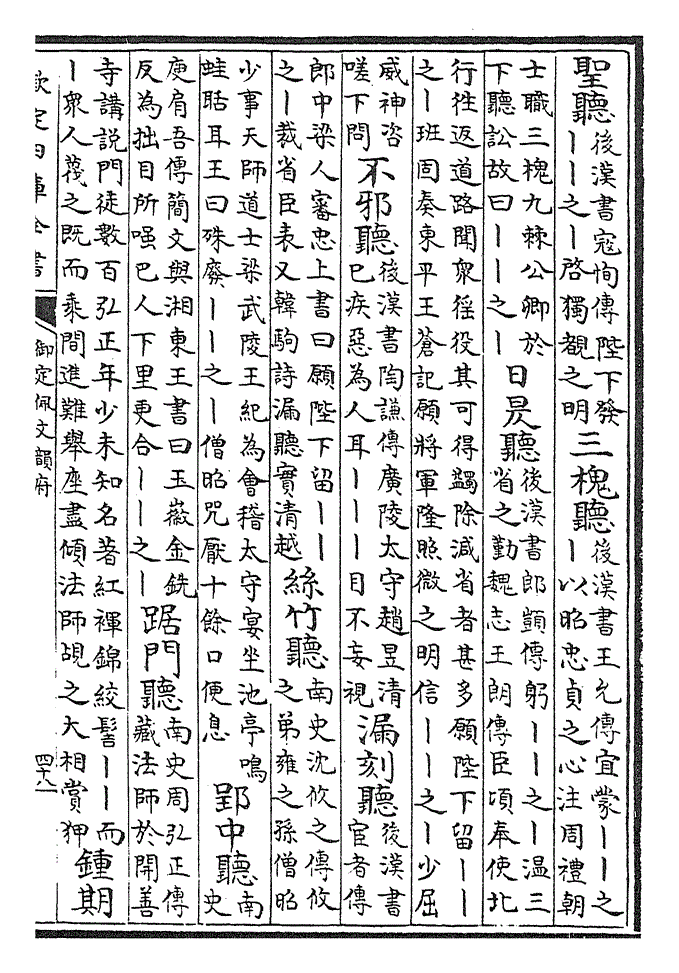 聖聽 後漢書寇恂傳陛下發丨丨之丨啓獨覩之明 三槐聽 後漢書王允傳宜蒙丨丨之丨以昭忠貞之心注周禮朝
士職三槐九棘公卿於下聽訟故曰丨丨之丨 日昃聽 後漢書郎顗傳躬丨丨之丨溫三省之勤魏志王朗傳臣頃奉使北
行徃返道路聞衆徭役其可得蠲除減省者甚多願陛下留丨丨之丨班固奏東平王蒼記願將軍隆照微之明信丨丨之丨少屈
威神咨嗟下問 不邪聽 後漢書陶謙傳廣陵太守趙昱清巳疾惡為人耳丨丨丨目不妄視 漏刻聽 後漢書宦者傳
郎中梁人審忠上書曰願陛下留丨丨之丨裁省臣表又韓駒詩漏聽實清越 絲竹聽 南史沈攸之傳攸之弟雍之孫僧昭
少事天師道士梁武陵王紀為會稽太守宴坐池亭鳴蛙聒耳王曰殊廢丨丨之丨僧昭咒厭十餘口便息 郢中聽 南史
庾肩吾傳簡文與湘東王書曰玉徽金銑反為拙目所嗤巴人下里更合丨丨之丨 踞門聽 南史周弘正傳藏法師於開善
寺講說門徒數百弘正年少未知名著紅褌錦絞髻丨丨而丨衆人蔑之既而乘間進難舉座盡傾法師覘之大相賞狎 鍾期
欽定四庫全書 御定佩文韻府 四十八